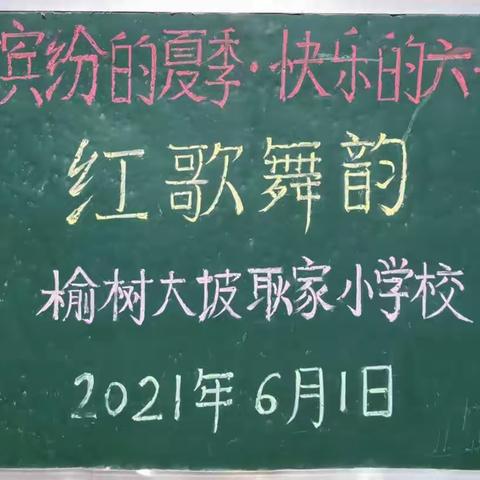 缤纷的夏季·快乐的六·
红歌舞韵
榆树大坡耿家小学校
2021年6月1日